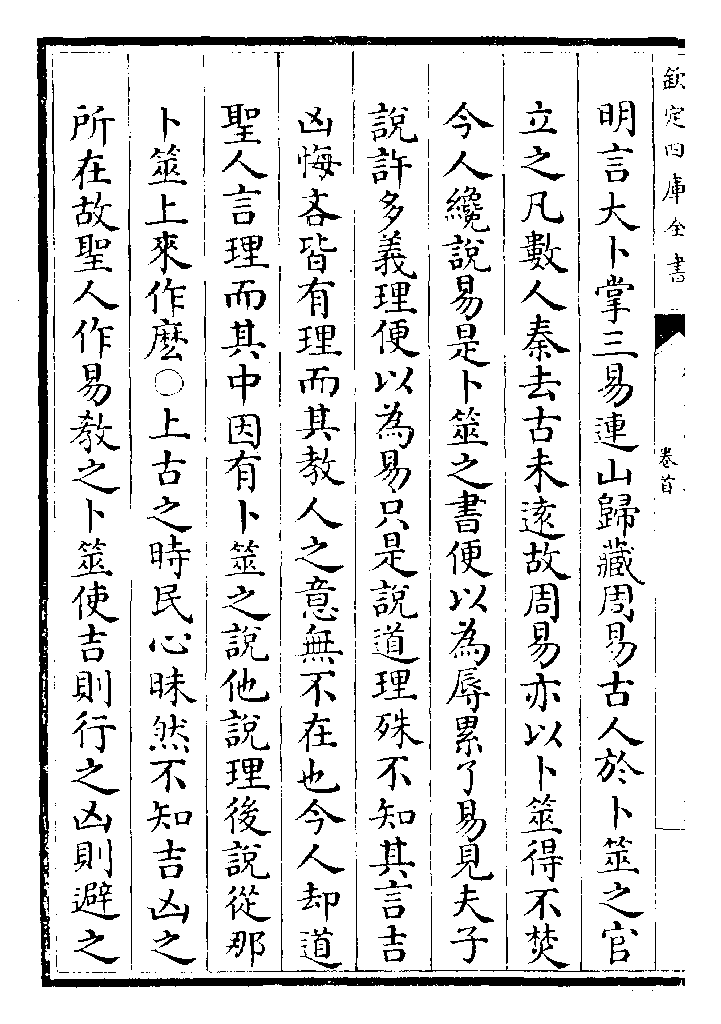 欽定四庫全書
卷首
明言大卜掌三易連山歸藏周易古人於卜筮之官
立之凡數人秦去古未逺故周易亦以卜筮得不焚
今人纔說易是卜筮之書便以為辱累了易見夫子
說許多義理便以為易只是說道理殊不知其言吉
凶悔吝皆有理而其教人之意無不在也今人却道
聖人言理而其中因有卜筮之說他說理後說從那
卜筮上來作麽○上古之時民心昧然不知吉凶之
所在故聖人作易教之卜筮使吉則行之凶則避之